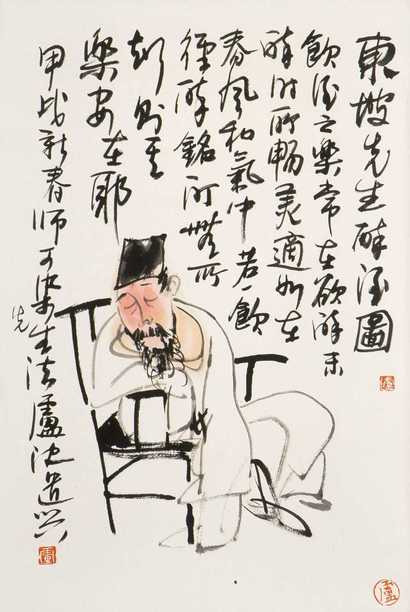 東坡先生醉酒圖
飲酒之樂常在欲醉未
醉时酣暢美適如在
春風和氣中若一飲
徑醉銘酊無所
知則其
樂安在耶
甲戌新春師可染先生法盧沈遣興
盧